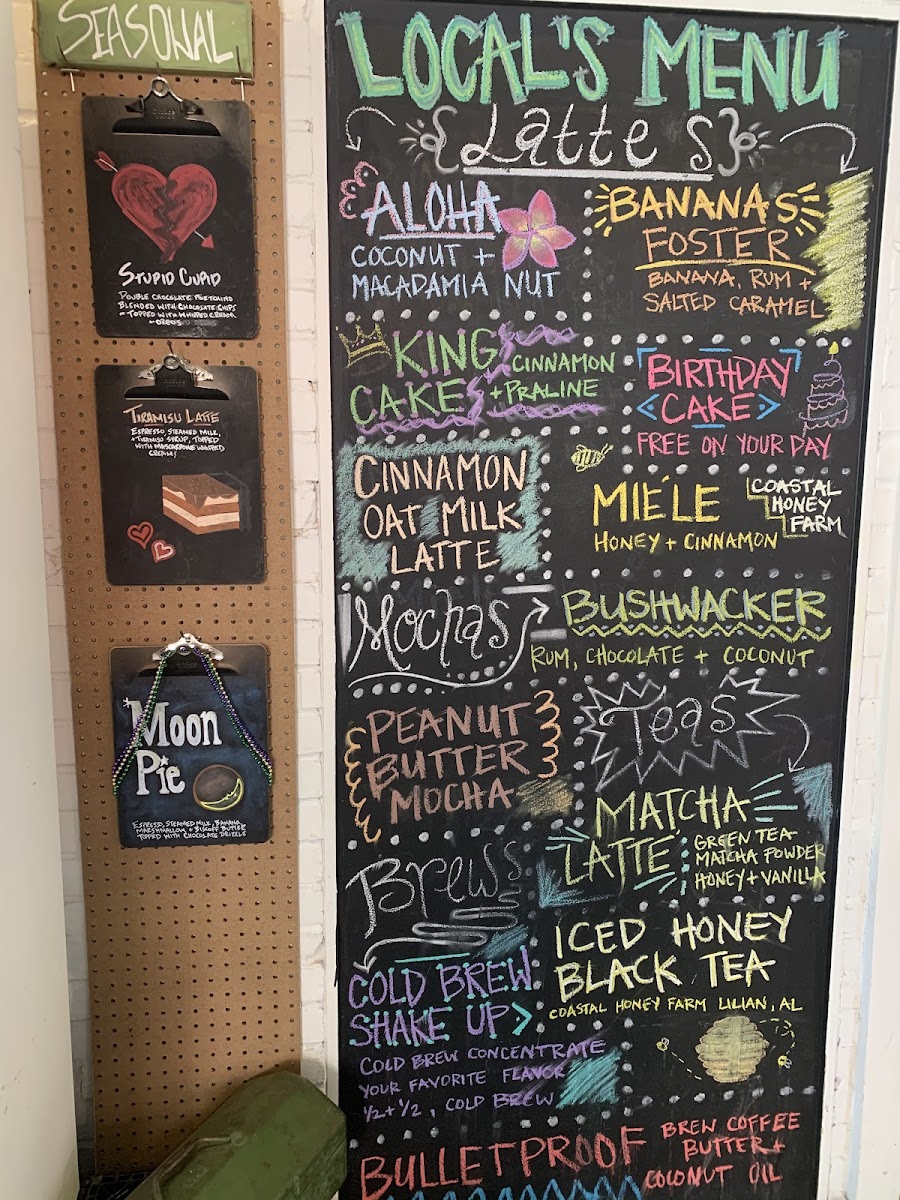 SEASONAL
STUPID CUPID
DOUBLE CHOCOLATE
BLENDED WITH CHOCOLATE CHIPS
TOPPED WITH WHIPPED CREAM
+ OREOS
TIRAMISU LATTE
ESPRESSO, STEAMED MILK,
+ TIRAMISU SYRUP, TOPPED
WITH MASCARPONE WHIPPED
CREAM!
Moon
Pie
ESPRESSO, STEAMED MILK, BANANA
MARSHMALLOW + BISCOFF BUTTER
TOPPED WITH CHOCOLATE DRIZZLE
LOCAL'S MENU
Latte s
ALOHA
COCONUT +
MACADAMIA NUT
BANANAS
FOSTER
BANANA, RUM +
SALTED CARAMEL
KING
CAKE
CINNAMON
+ PRALINE
BIRTHDAY
CAKE
FREE ON YOUR DAY
CINNAMON
OAT MILK
LATTE
MIÉLE
COASTAL
HONEY
FARM
HONEY + CINNAMON
Mochas
BUSHWACKER
RUM, CHOCOLATE + COCONUT
PEANUT
BUTTER
MOCHA
Teas
MATCHA
LATTE
GREEN TEA
MATCHA POWDER
HONEY + VANILLA
Brews
ICED HONEY
BLACK TEA
COASTAL HONEY FARM LILIAN, AL
COLD BREW
SHAKE UP >
COLD BREW CONCENTRATE
YOUR FAVORITE FLAVOR
1/2 + 1/2, COLD BREW
BULLETPROOF
BREW COFFEE
BUTTER +
COCONUT OIL